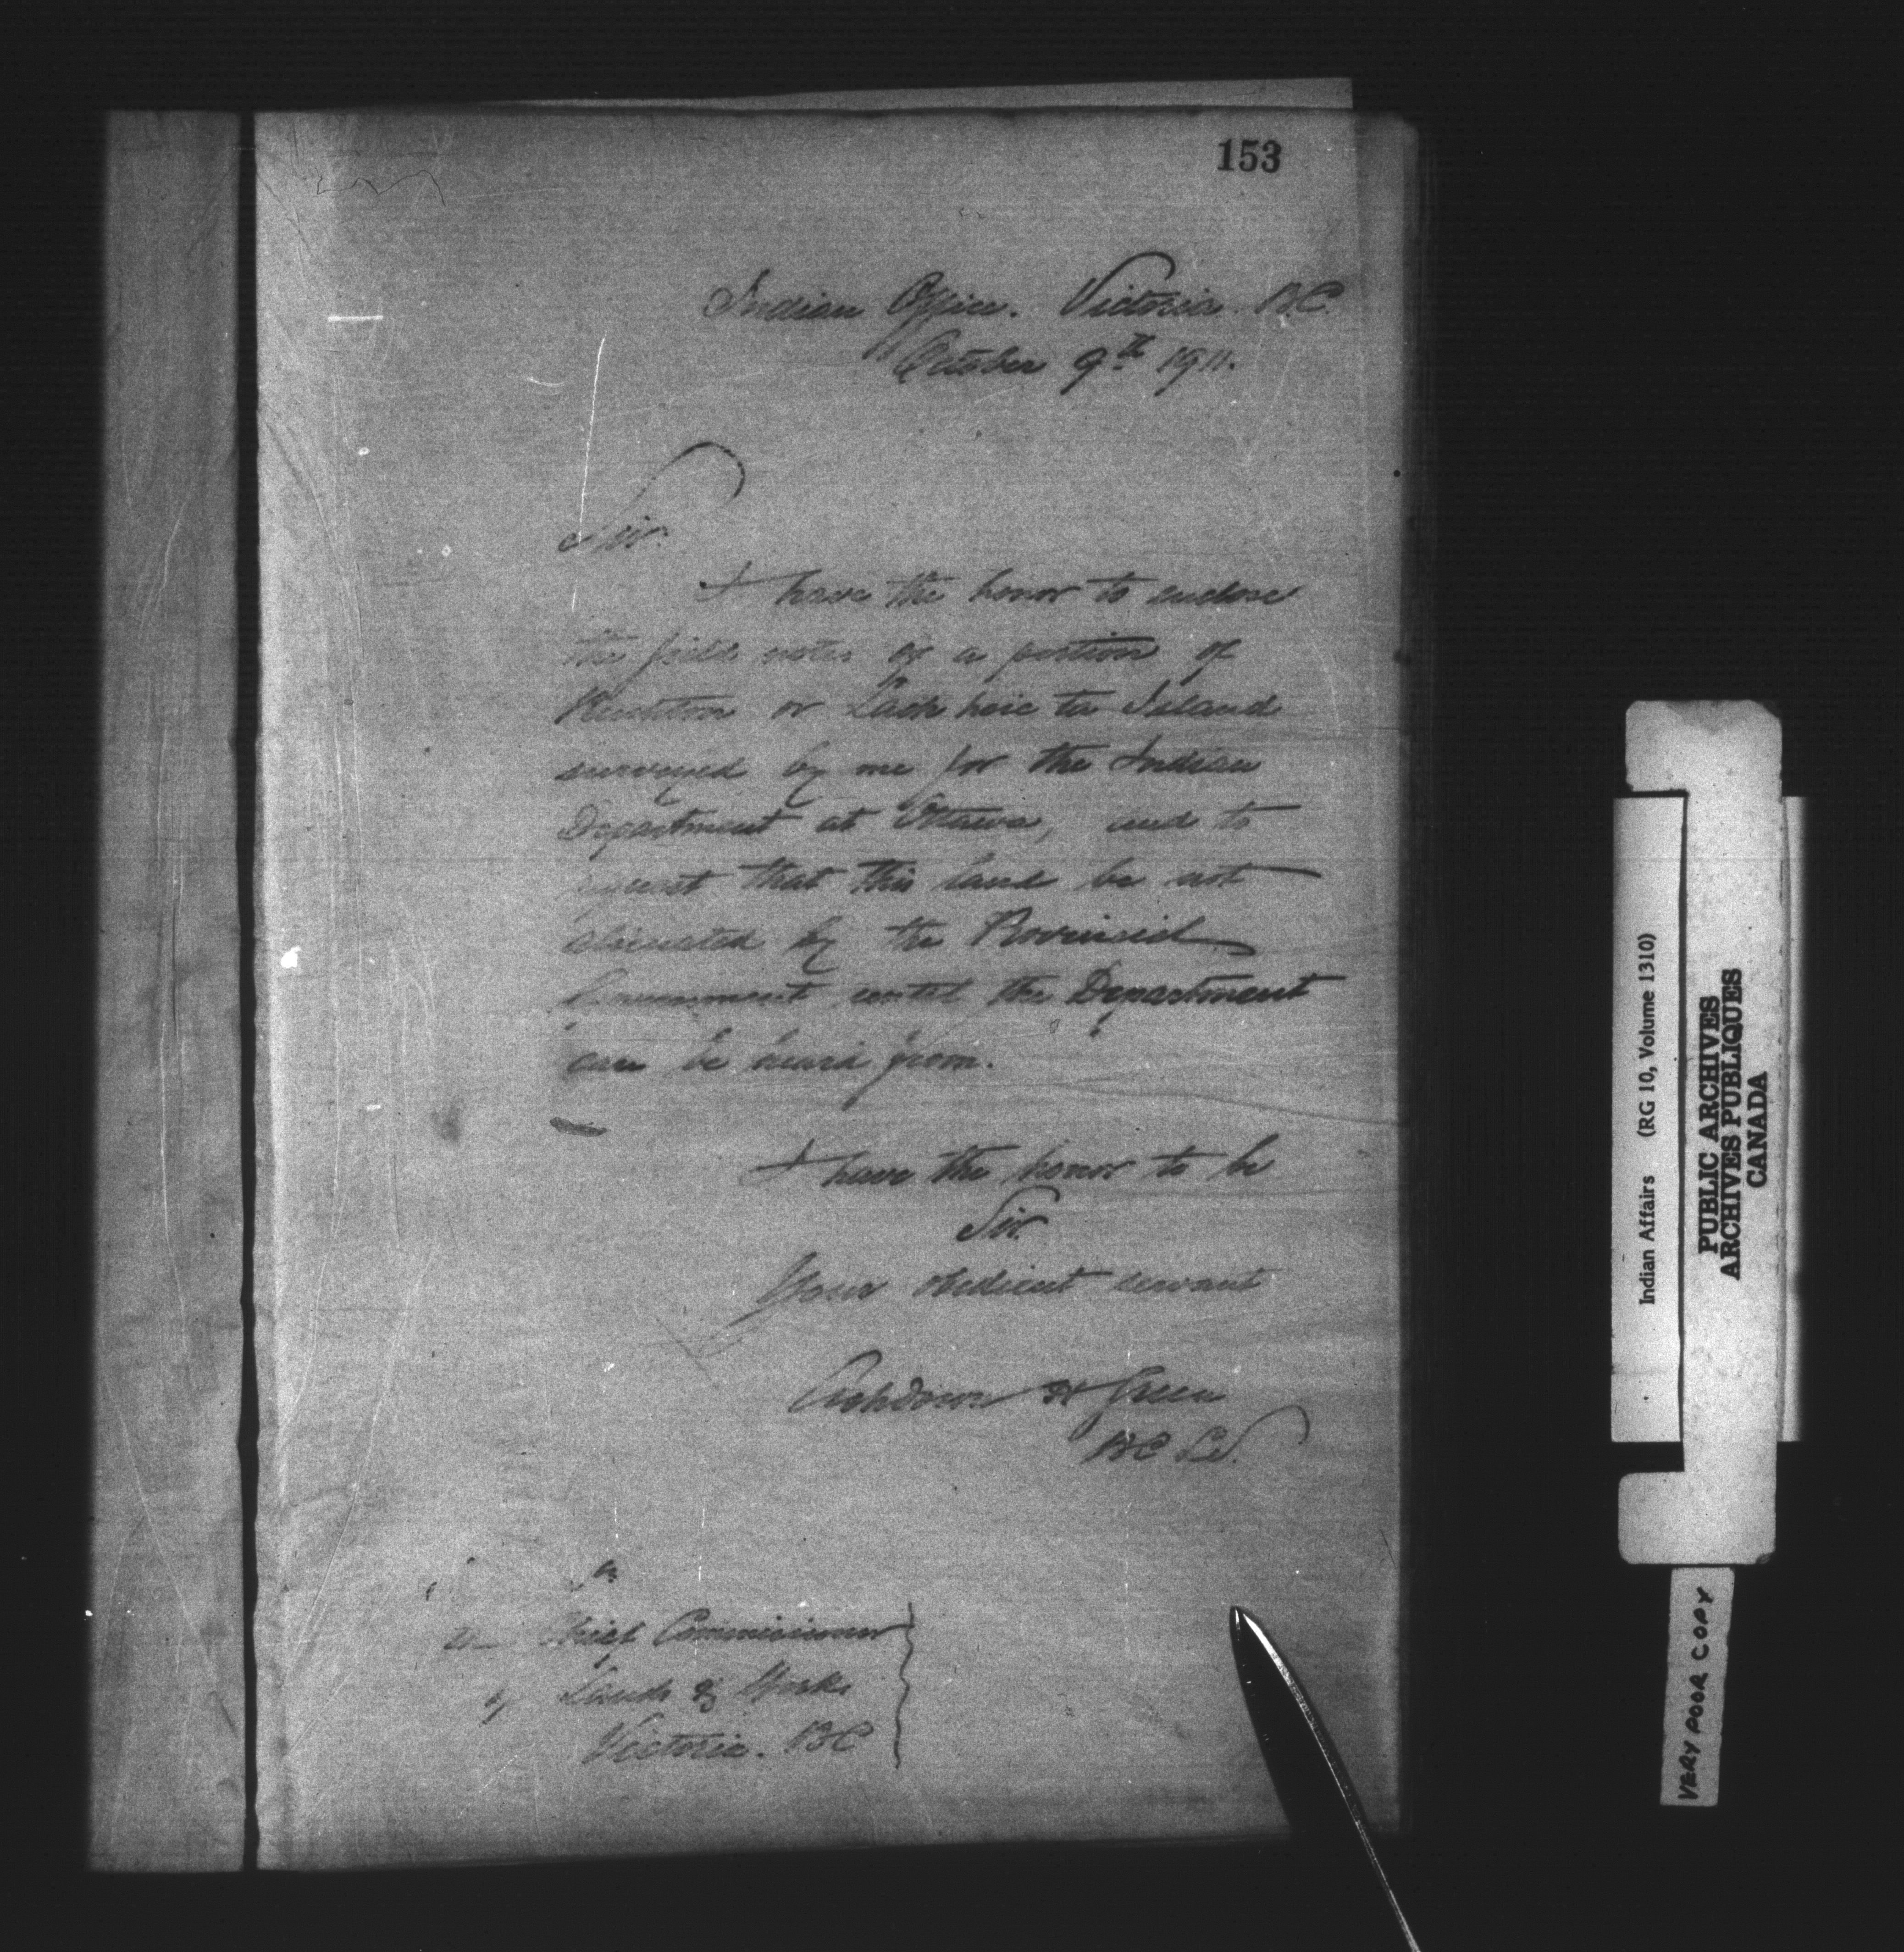 153
Indian Office. Victoria. B.C.
October 9th 1911.
Sir.
I have the honor to enclose
the field notes of a portion of
or Island
surveyed by me for the Indian
Department at Ottawa, and to
request that this land be not
alienated by the Provincial
Government until the Department
can be heard from.
I have the honor to be
Sir.
Your obedient servant
Ashdown H Green
BC LS.
Chief Commissioner
of Lands & Works
Victoria. BC
Indian Affairs (RG 10, Volume 1310)
PUBLIC ARCHIVES
ARCHIVES PUBLIQUES
CANADA
VERY POOR COPY